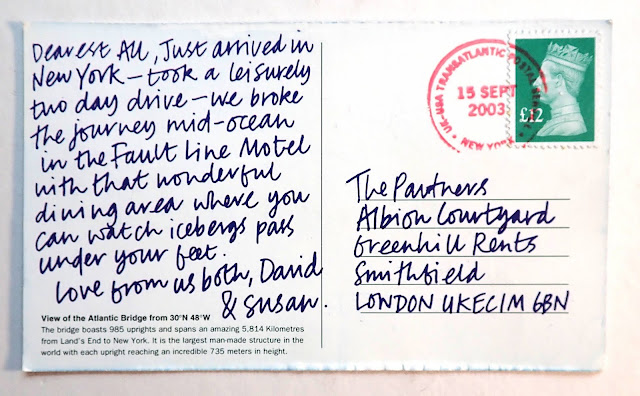 Dearest All, Just arrived in
New York – took a leisurely
two day drive – we broke
the journey mid-ocean
in the Fault Line Motel
with that wonderful
dining area where you
can watch icebergs pass
under your feet.
Love from us both, David
& Susan.
View of the Atlantic Bridge from 30°N 48°W
The bridge boasts 985 uprights and spans an amazing 5,814 Kilometres
from Land's End to New York. It is the largest man-made structure in the
world with each upright reaching an incredible 735 meters in height.
UK-USA TRANSATLANTIC POSTAL SERVICE
15 SEPT
2003
NEW YORK
£12
The Partners
Albion Courtyard
Greenhill Rents
Smithfield
LONDON UK EC1M 6BN